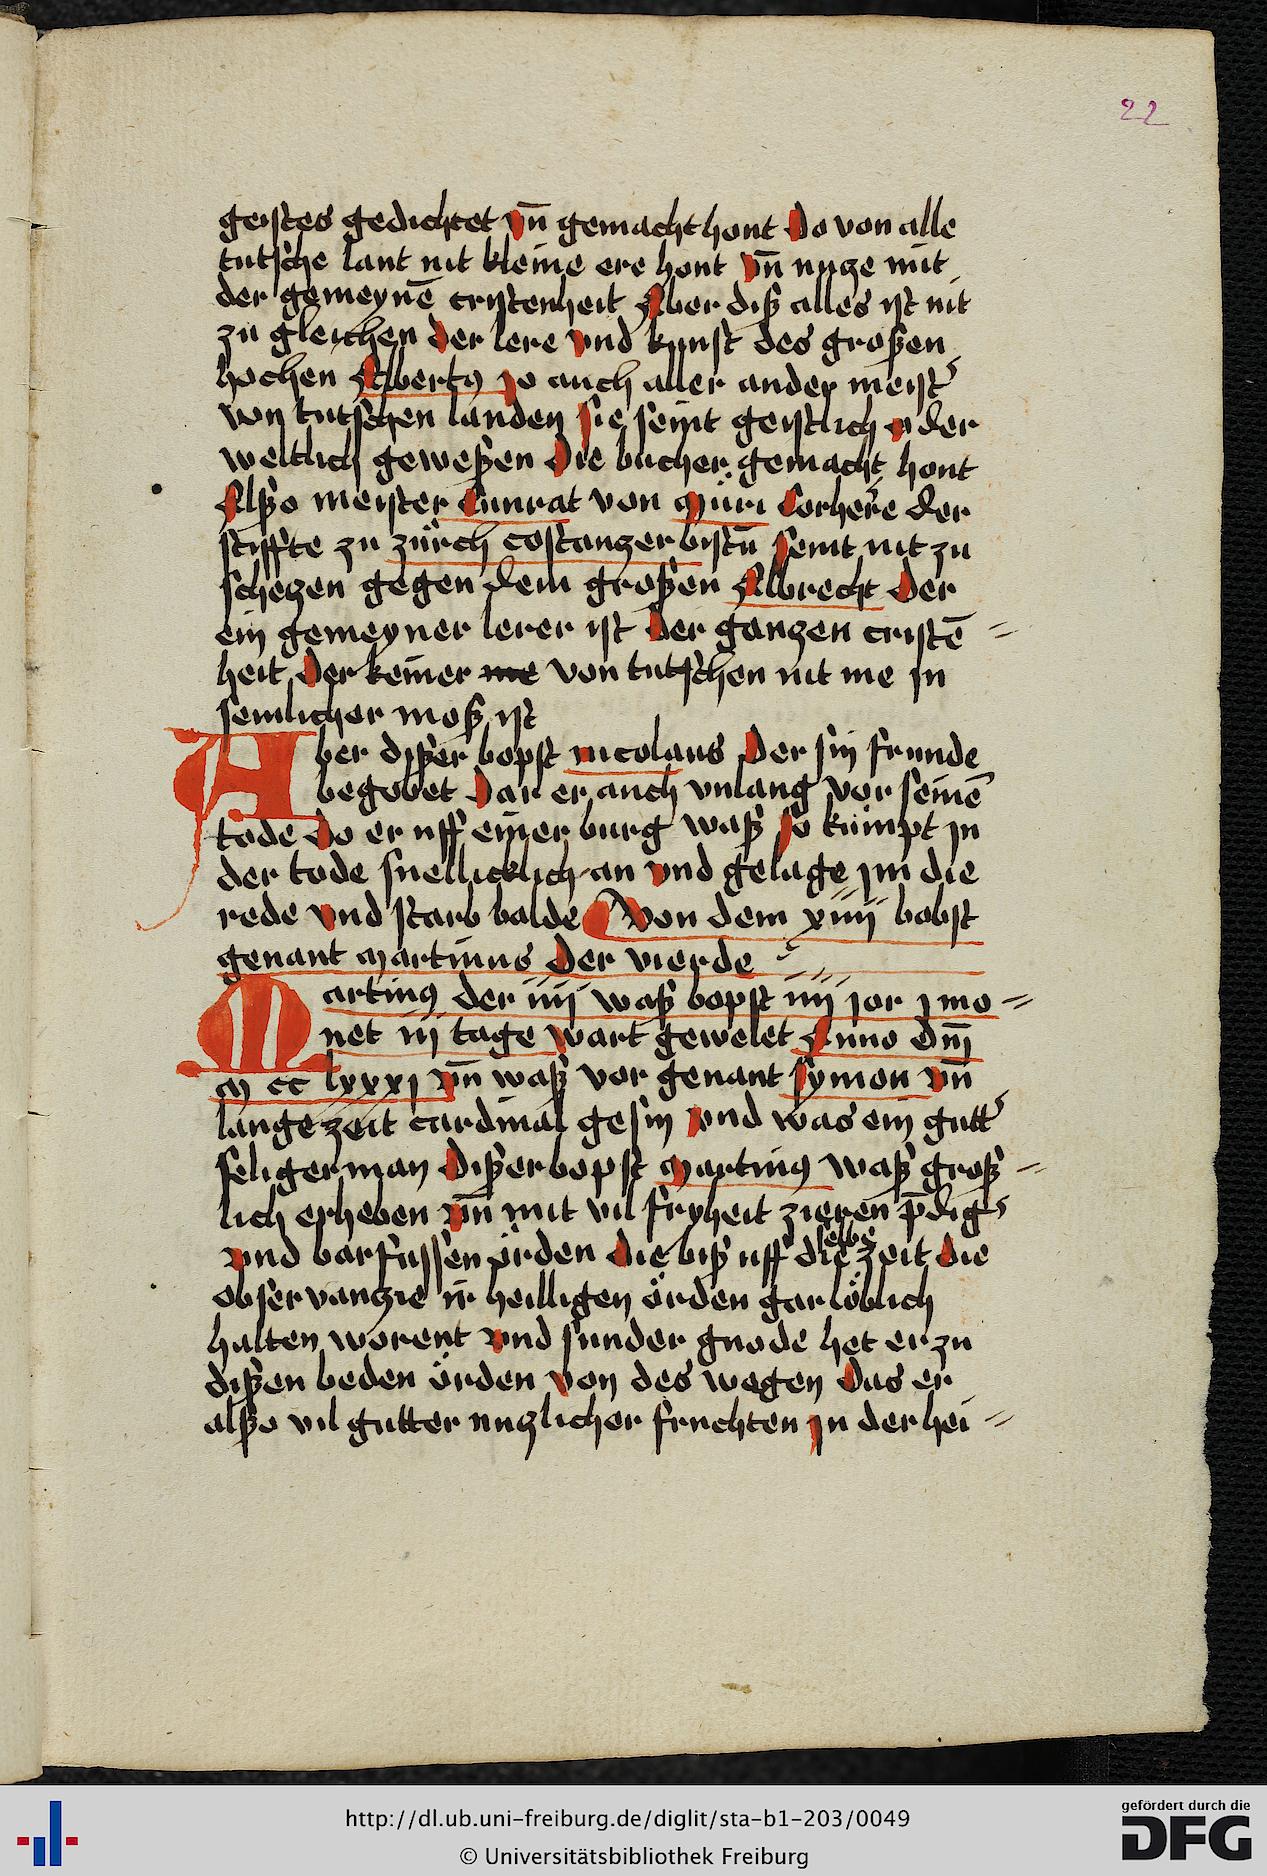 22
geistes gedichtet vn̄ gemacht hont Do von alle
tutsche lant nit kleine ere hont vn̄ nuze mit
der gemeynē cristenheit Aber diß alles ist nit
zu gleichen der lere vnd kunst des großen
hochen Albertꝯ jo auch aller ander meist
von tutschen landen sie seint geistlich oder
weltlich geweßen Die bucher gemacht hont
Alßo meister Cunrat von Müri Corherre der
stiffte zu zürch costanzer bistū seint nit zu
schezen gegen dem großen Albrecht Der
ein gemeyner lerer ist Der ganzen cristē =
heit Der keiner me von tutschen nit me in
semlicher moß ist
Aber dißer bopst nicolaus Der sin frunde
begobet Dar er auch vnlang vor seinē
tode Do er uff einer burg waß so kumpt in
der tode snellicklich an vnd gelage im die
rede vnd starb balde Von dem xiiii bobst
genant Martinus Der vierde
Martinꝯ der iiii waß bopst iiii jor j mo =
net iii tage wart gewelet Anno dn̄i
M cc lxxxj vn̄ waß vor genant Symon vn̄
lange zeit cardinal gesin vnd was ein gutt
seliger man Dißer bopst Martinꝯ waß groß =
lich erheben vn̄ mit vil fryheit zieren p̄dig
vnd barfussen örden Die biß uff die selbe zeit die
obseruanzie ir heilligen örden gar löblich
halten worent vnd sunder gnode het er zu
dißen beden örden von des wegen Das er
alßo vil gutter nuzlicher fruchten in der hei =
http://dl.ub.uni-freiburg.de/diglit/sta-b1-203/0049
© Universitätsbibliothek Freiburg
gefördert durch die
DFG